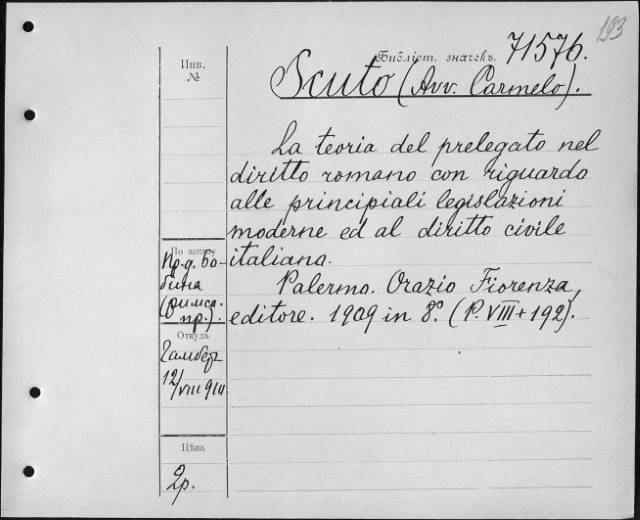 193
Библіот. значекъ. 71576.
Инв.
№
Scuto (Avv. Carmelo).
La teoria del prelegato nel
diritto romano con riguardo
alle principiali legislazioni
moderne ed al diritto civile
italiana.
Palermo. Orazio Fiorenza,
editore. 1909 in 8º. (P. VIII + 192).
По заказу
Пр. д. Бо-
бина
(римск.
пр.).
Откуда
12/VIII 910
Цѣна
2р.